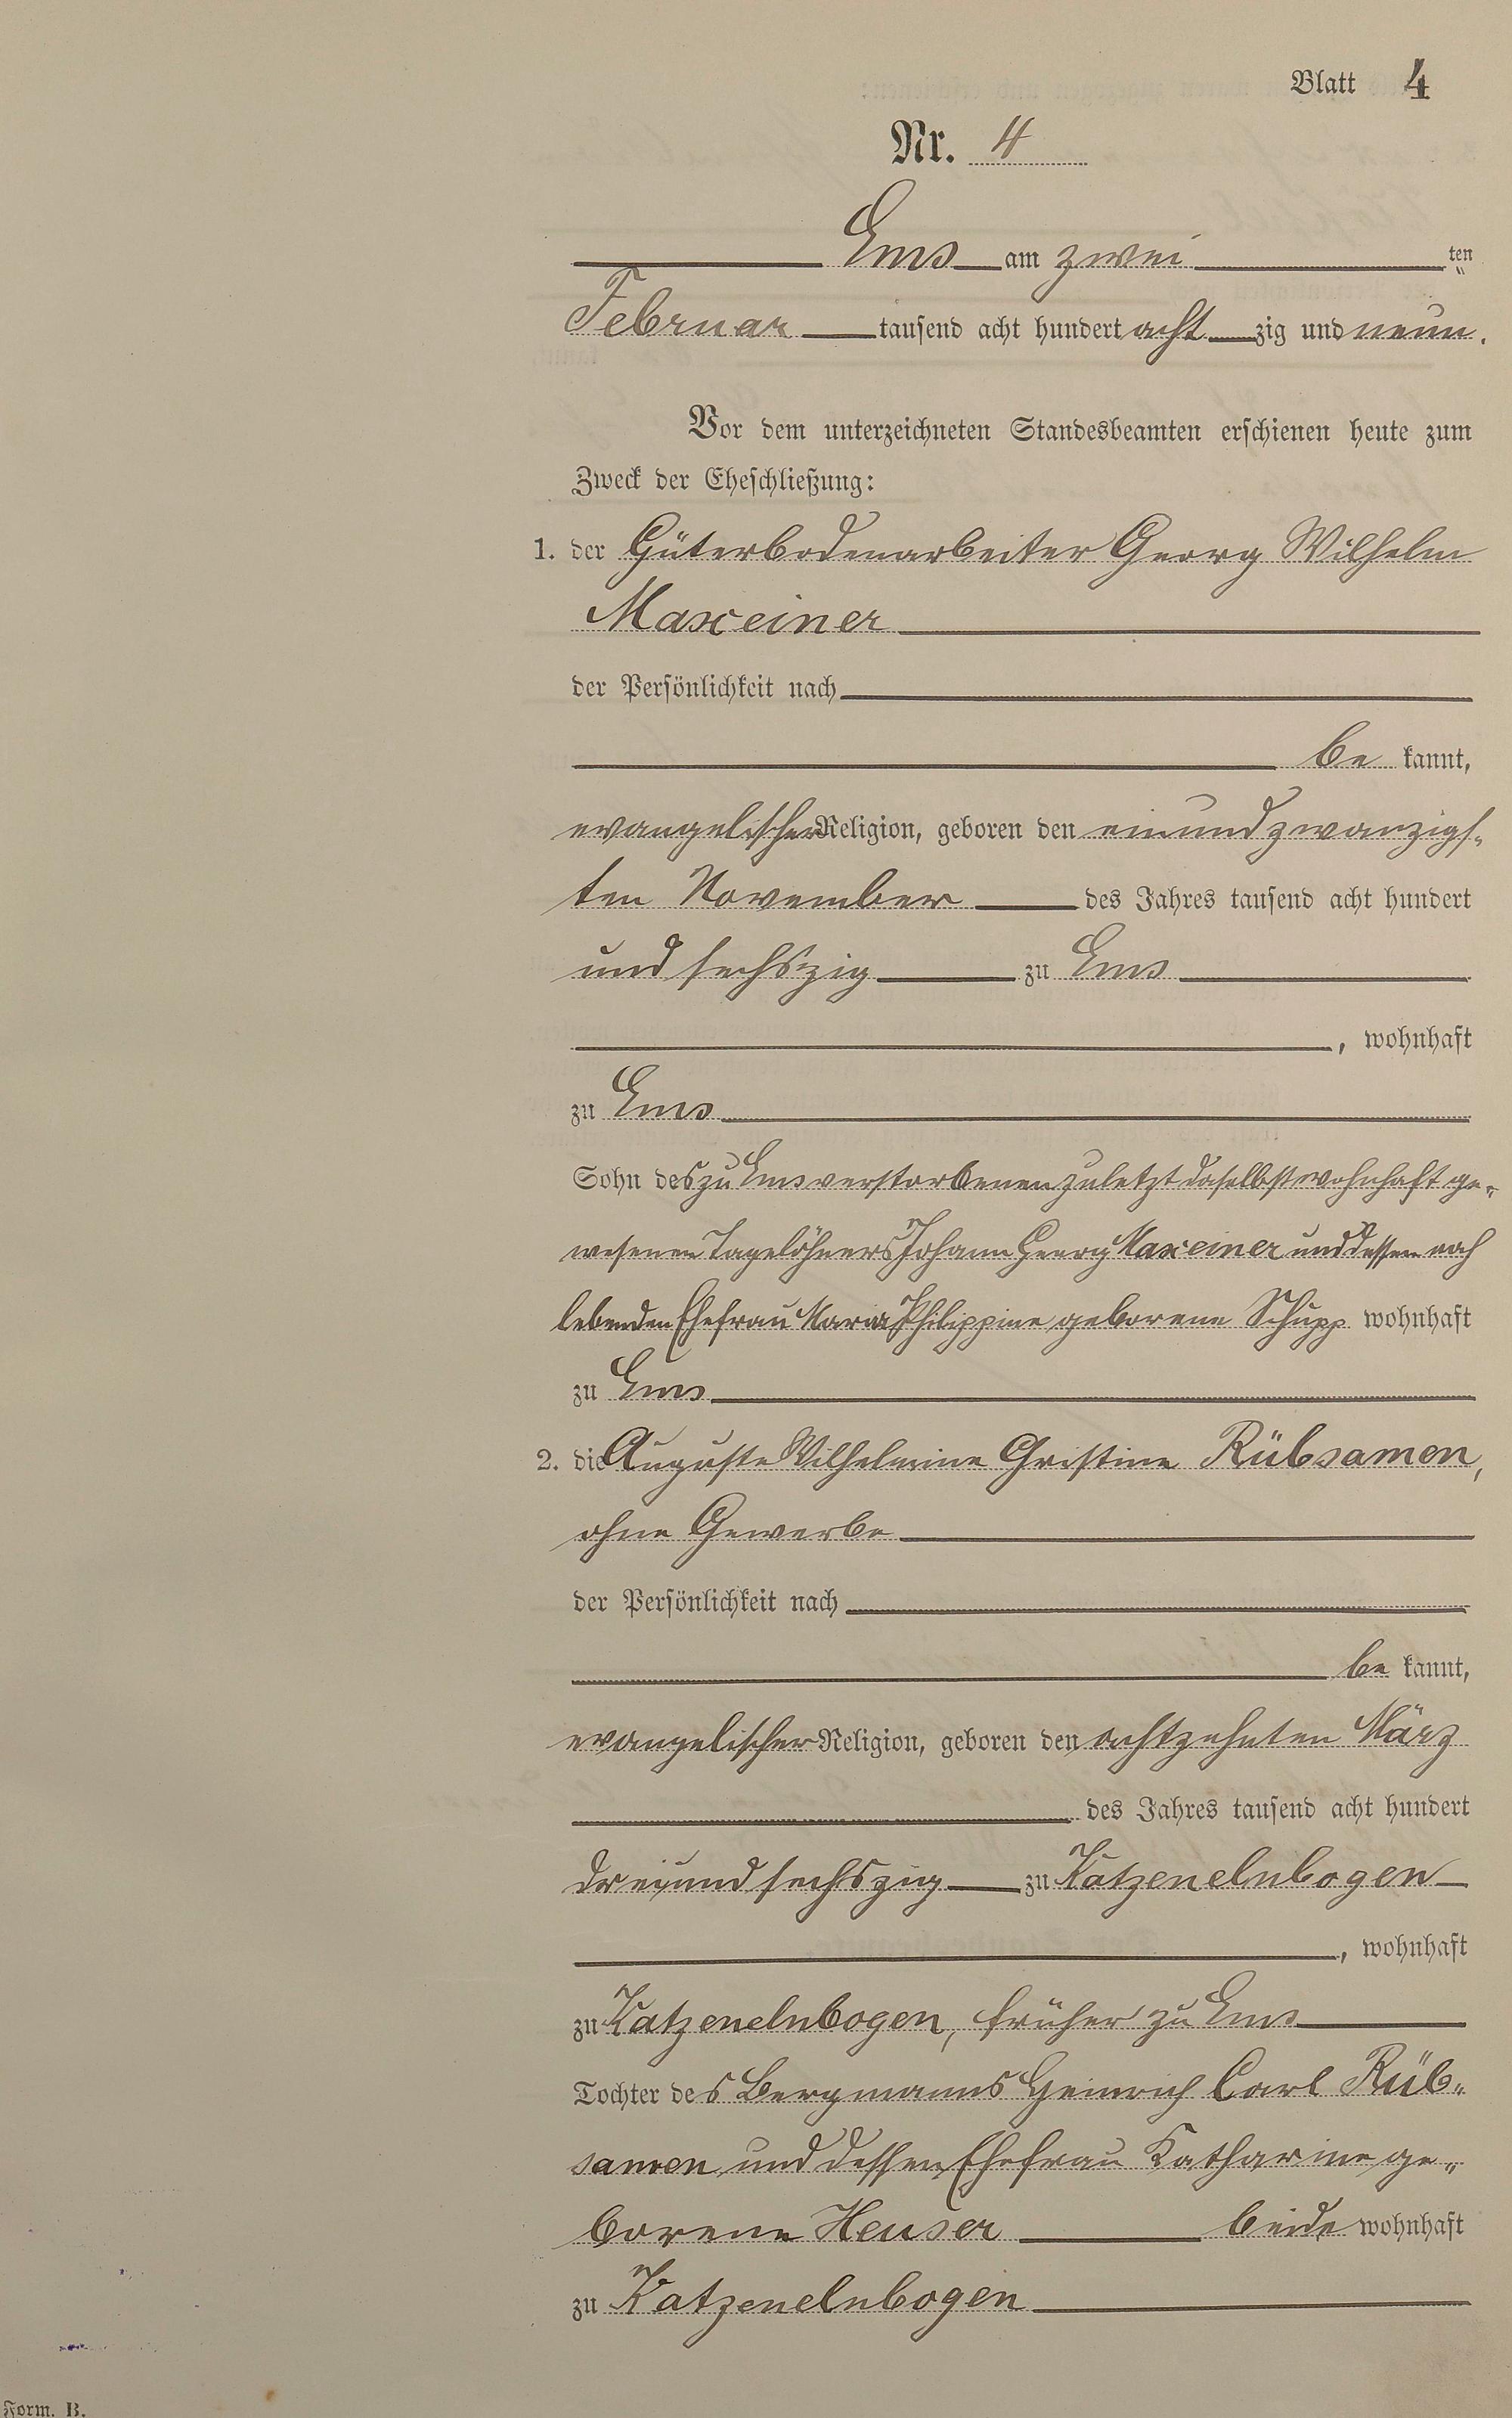 Blatt 4
Nr. 4
Ems am zwei ten
Februar tausend acht hundert acht zig und neun.
Vor dem unterzeichneten Standesbeamten erschienen heute zum
Zweck der Eheschließung:
1. der Güterbodenarbeiter Georg Wilhelm
Maxeiner
der Persönlichkeit nach
be kannt,
evangelischer Religion, geboren den einundzwanzigs-
ten November des Jahres tausend acht hundert
und sechszig zu Ems
, wohnhaft
zu Ems
Sohn des zu Ems verstorbenen zuletzt daselbst wohnhaft ge-
wesenen Tagelöhners Johann Georg Maxeiner und dessen noch
lebenden Ehefrau Maria Philippine geborene Schupp wohnhaft
zu Ems
2. die Auguste Wilhelmine Christine Rübsamen,
ohne Gewerbe
der Persönlichkeit nach
be kannt,
evangelischer Religion, geboren den achtzehnten März
des Jahres tausend acht hundert
dreiundsechszig zu Katzenelnbogen
, wohnhaft
zu Katzenelnbogen, früher zu Ems
Tochter des Bergmanns Heinrich Carl Rüb-
samen und dessen Ehefrau Katharine ge-
borene Heuser beide wohnhaft
zu Katzenelnbogen
Form. B.